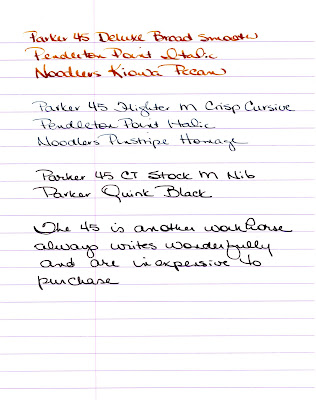 Parker 45 Deluxe Broad Smooth
Pendleton Point Italic
Noodlers Kiowa Pecan
Parker 45 Flighter M Crisp Cursive
Pendleton Point Italic
Noodlers Pinstripe Homage
Parker 45 CT Stock M Nib
Parker Quink Black
The 45 is another workhorse
always writes wonderfully
and are inexpensive to
purchase